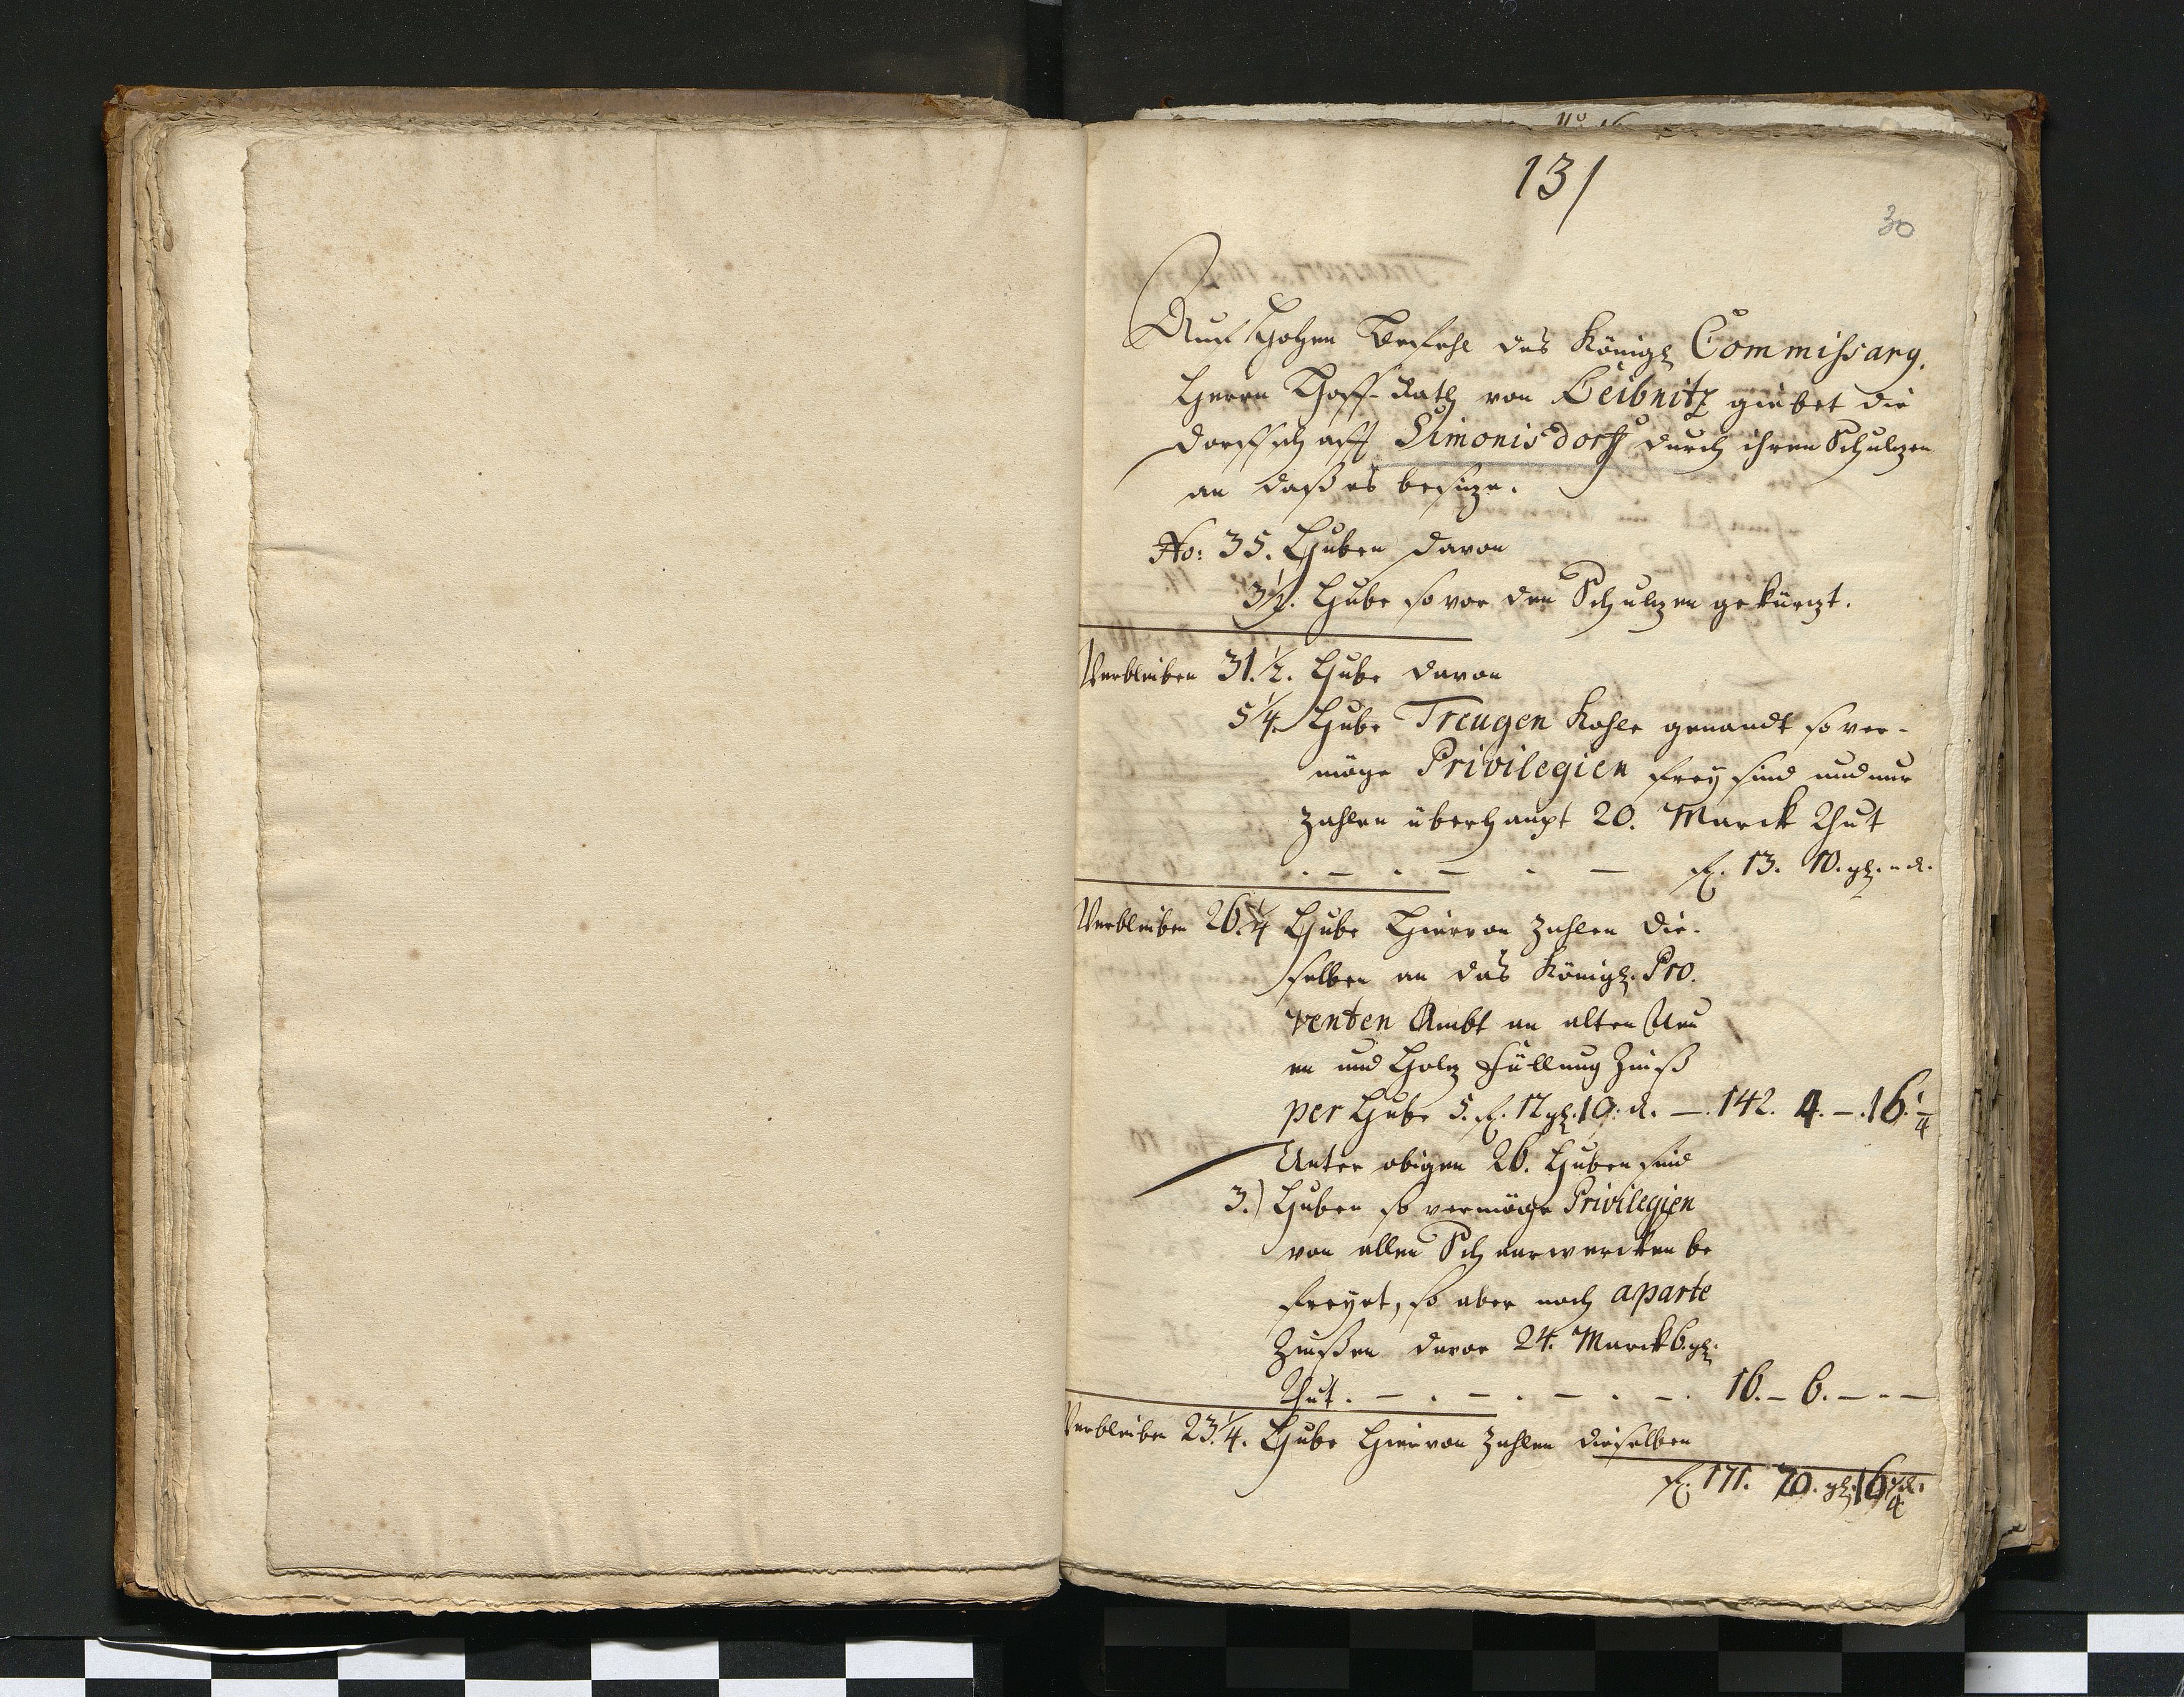 131
30
Auf Hohen Befehl des Königl Commissary.
Herrn Hoff-Rath von Leibnitz giebet die
Dorffschafft Simonisdorff durch ihren Schulzen
an daß es besitze.
No: 35. Huben davon
3½. Hube so vor den Schulzen gekürzt.
Verbleiben 31.½. Hube davon
5¼ Hube Treugen Kohle genandt so ver-
möge Privilegien frey sind und nur
zahlen überhaupt 20. Marck thut
. — . — . — f. 13. 10. gl. - d.
Verbleiben 26.¼ Hube Hiervon zahlen die-
selben an das Königl. Pro.
venten Ambt an alten Neu
en und Holz Füllung Zinß
per Hube 5. f. 12 gl. 10. d. —. 142. 4. —. 16.¼
Unter obigen 26. Huben sind
3.) Huben so vermöge Privilegien
von allen Scharwercken be
freyet, so aber noch aparte
Zinßen davor 24. Marck 6. gl.
thut. — . — . — . — . 16. — 6. — - —
Verbleiben 23.¼. Hube Hiervon zahlen dieselben
f. 171. 20. gl. 16¼ d.